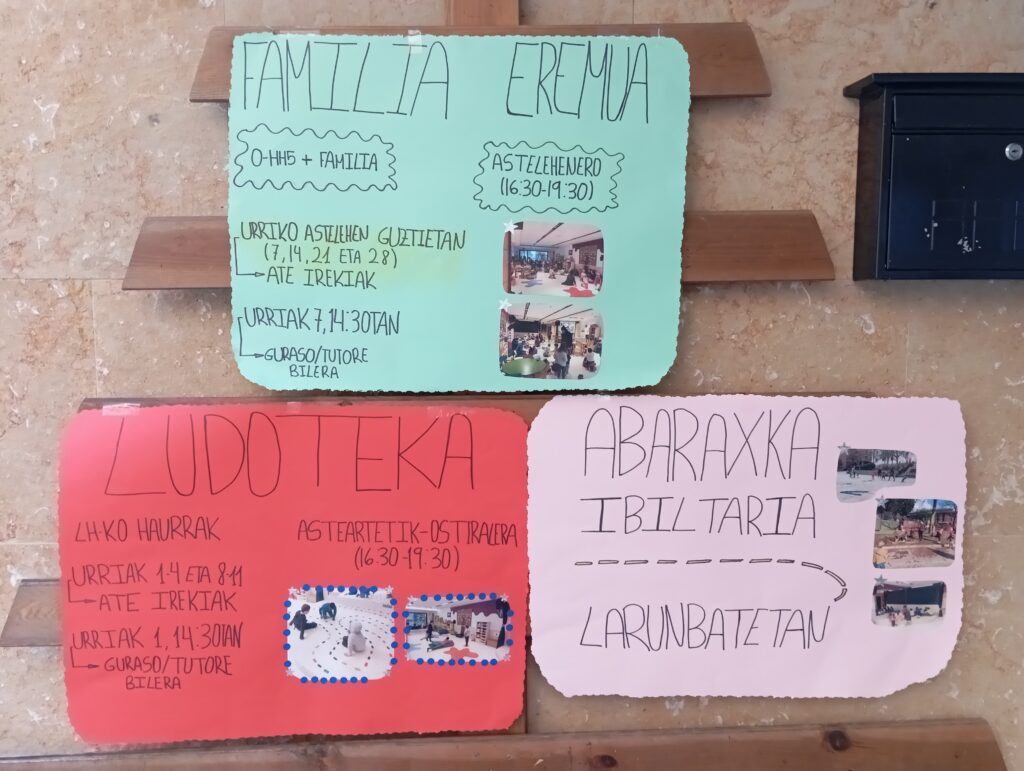 FAMILIA EREMUA
0-HH5 + FAMILIA
ASTELEHENERO
(16:30-19:30)
URRIKO ASTELEHEN GUZTIETAN
(7, 14, 21 ETA 28)
ATE IREKIAK
URRIAK 7, 14:30TAN
GURASO/TUTORE
BILERA
LUDOTEKA
LH-KO HAURRAK
ASTEARTETIK-OSTIRALERA
(16:30-19:30)
URRIAK 1-4 ETA 8-11
ATE IREKIAK
URRIAK 1, 14:30TAN
GURASO/TUTORE
BILERA
ABARAXKA
IBILTARIA
LARUNBATETAN